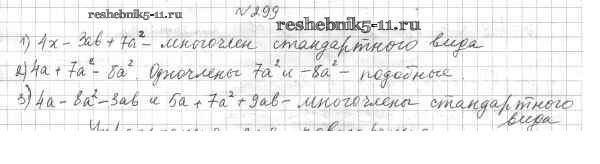 reshebnik5-11.ru
№299
reshebnik5-11.ru
1) 4x - 3ab + 7a² - многочлен стандартного вида
2) 4a + 7a² - 8a². Одночлены 7a² и -8a² - подобные.
3) 4a - 8a² - 3ab и 5a + 7a² + 9ab - многочлены стандартного
вида